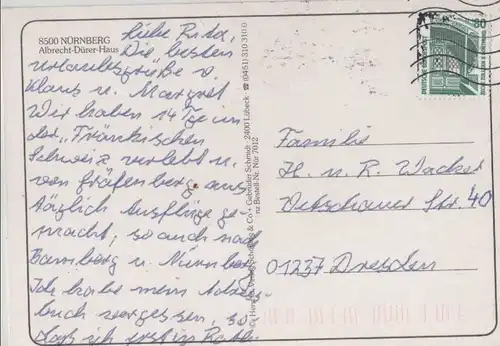 8500 NÜRNBERG
Albrecht-Dürer-Haus
Liebe Rita,
Die besten
Urlaubsgrüße v.
Klaus u. Margret
Wir haben 14 Tge in
der "Fränkischen
Schweiz verlebt u.
von Gräfenberg aus
täglich Ausflüge ge-
macht, so auch nach
Bamberg u. Nürnberg
Ich habe mein Adress-
buch vergessen, so
daß ich erst in
Schöning & Co + Gebrüder Schmidt · 2400 Lübeck · ☎ (0451) 310 310 0
Bestell-Nr. Nür 7012
80
DEUTSCHE BUNDESPOST
Familie
H. u. R. Wacker
Vetschauer Str. 40
01237 Dresden